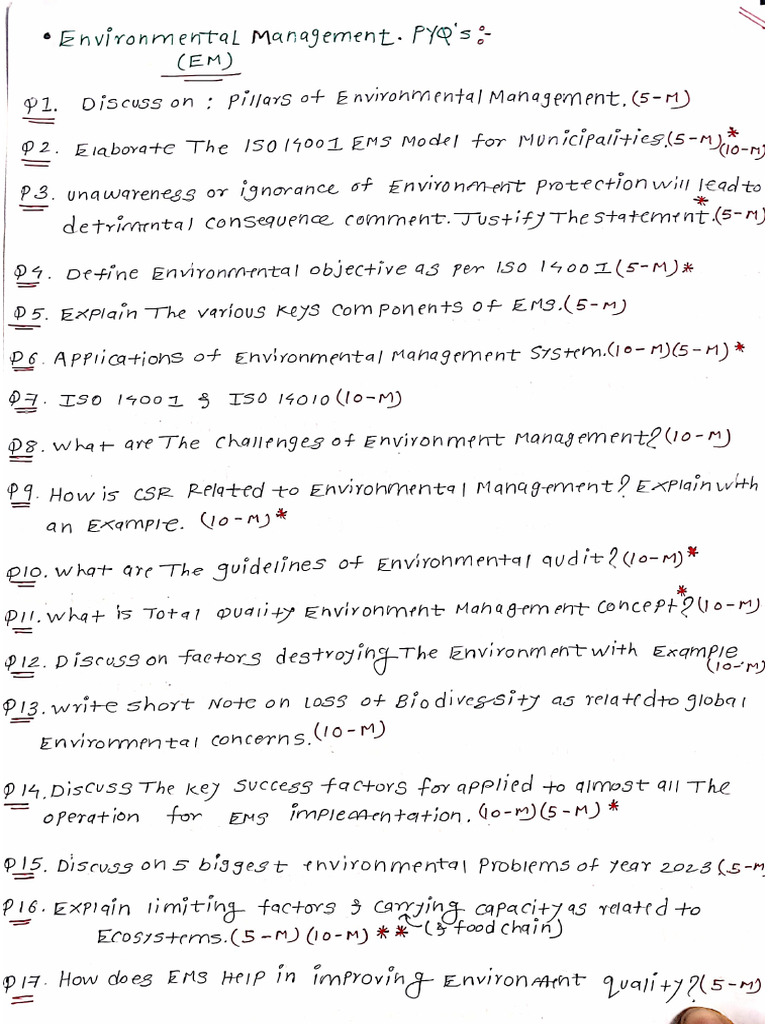 • Environmental Management. PYQ's :-
(EM)
Q1. Discuss on : Pillars of Environmental Management. (5-M)
Q2. Elaborate The ISO 14001 EMS Model for Municipalities. (5-M)* (10-M)
Q3. unawareness or ignorance of Environment Protection will lead to
detrimental consequence comment. Justify The statement*. (5-M)
Q4. Define Environmental objective as per ISO 14001 (5-M)*
Q5. Explain The various keys components of EMS. (5-M)
Q6. Applications of Environmental Management System. (10-M)(5-M)*
Q7. ISO 14001 & ISO 14010 (10-M)
Q8. What are The challenges of Environment Management? (10-M)
Q9. How is CSR Related to Environmental Management? Explain with
an Example. (10-M)*
Q10. What are The guidelines of Environmental audit? (10-M)*
Q11. What is Total Quality Environment Management concept*? (10-M)
Q12. Discuss on factors destroying The Environment with Example (10-M)
Q13. Write short Note on Loss of Biodiversity as related to global
Environmental concerns. (10-M)
Q14. Discuss The key success factors for applied to almost all The
operation for EMS implementation. (10-M)(5-M)*
Q15. Discuss on 5 biggest environmental Problems of year 2023 (5-M
Q16. Explain limiting factors & carrying capacity as related to
Ecosystems. (5-M)(10-M)** (& food chain)
Q17. How does EMS Help in improving Environment quality? (5-M)